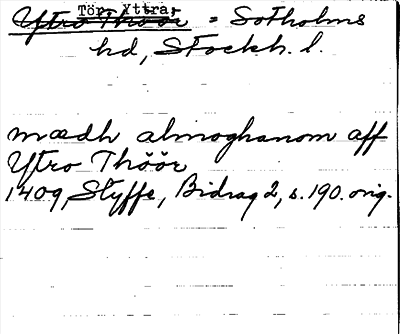 Tör, Yttra,
Ytro Thöör = Sotholms
hd, Stockh. l.
mædh almoghanom aff
Ytro Thöör
1409, Styffe, Bidrag 2, s. 190. orig.